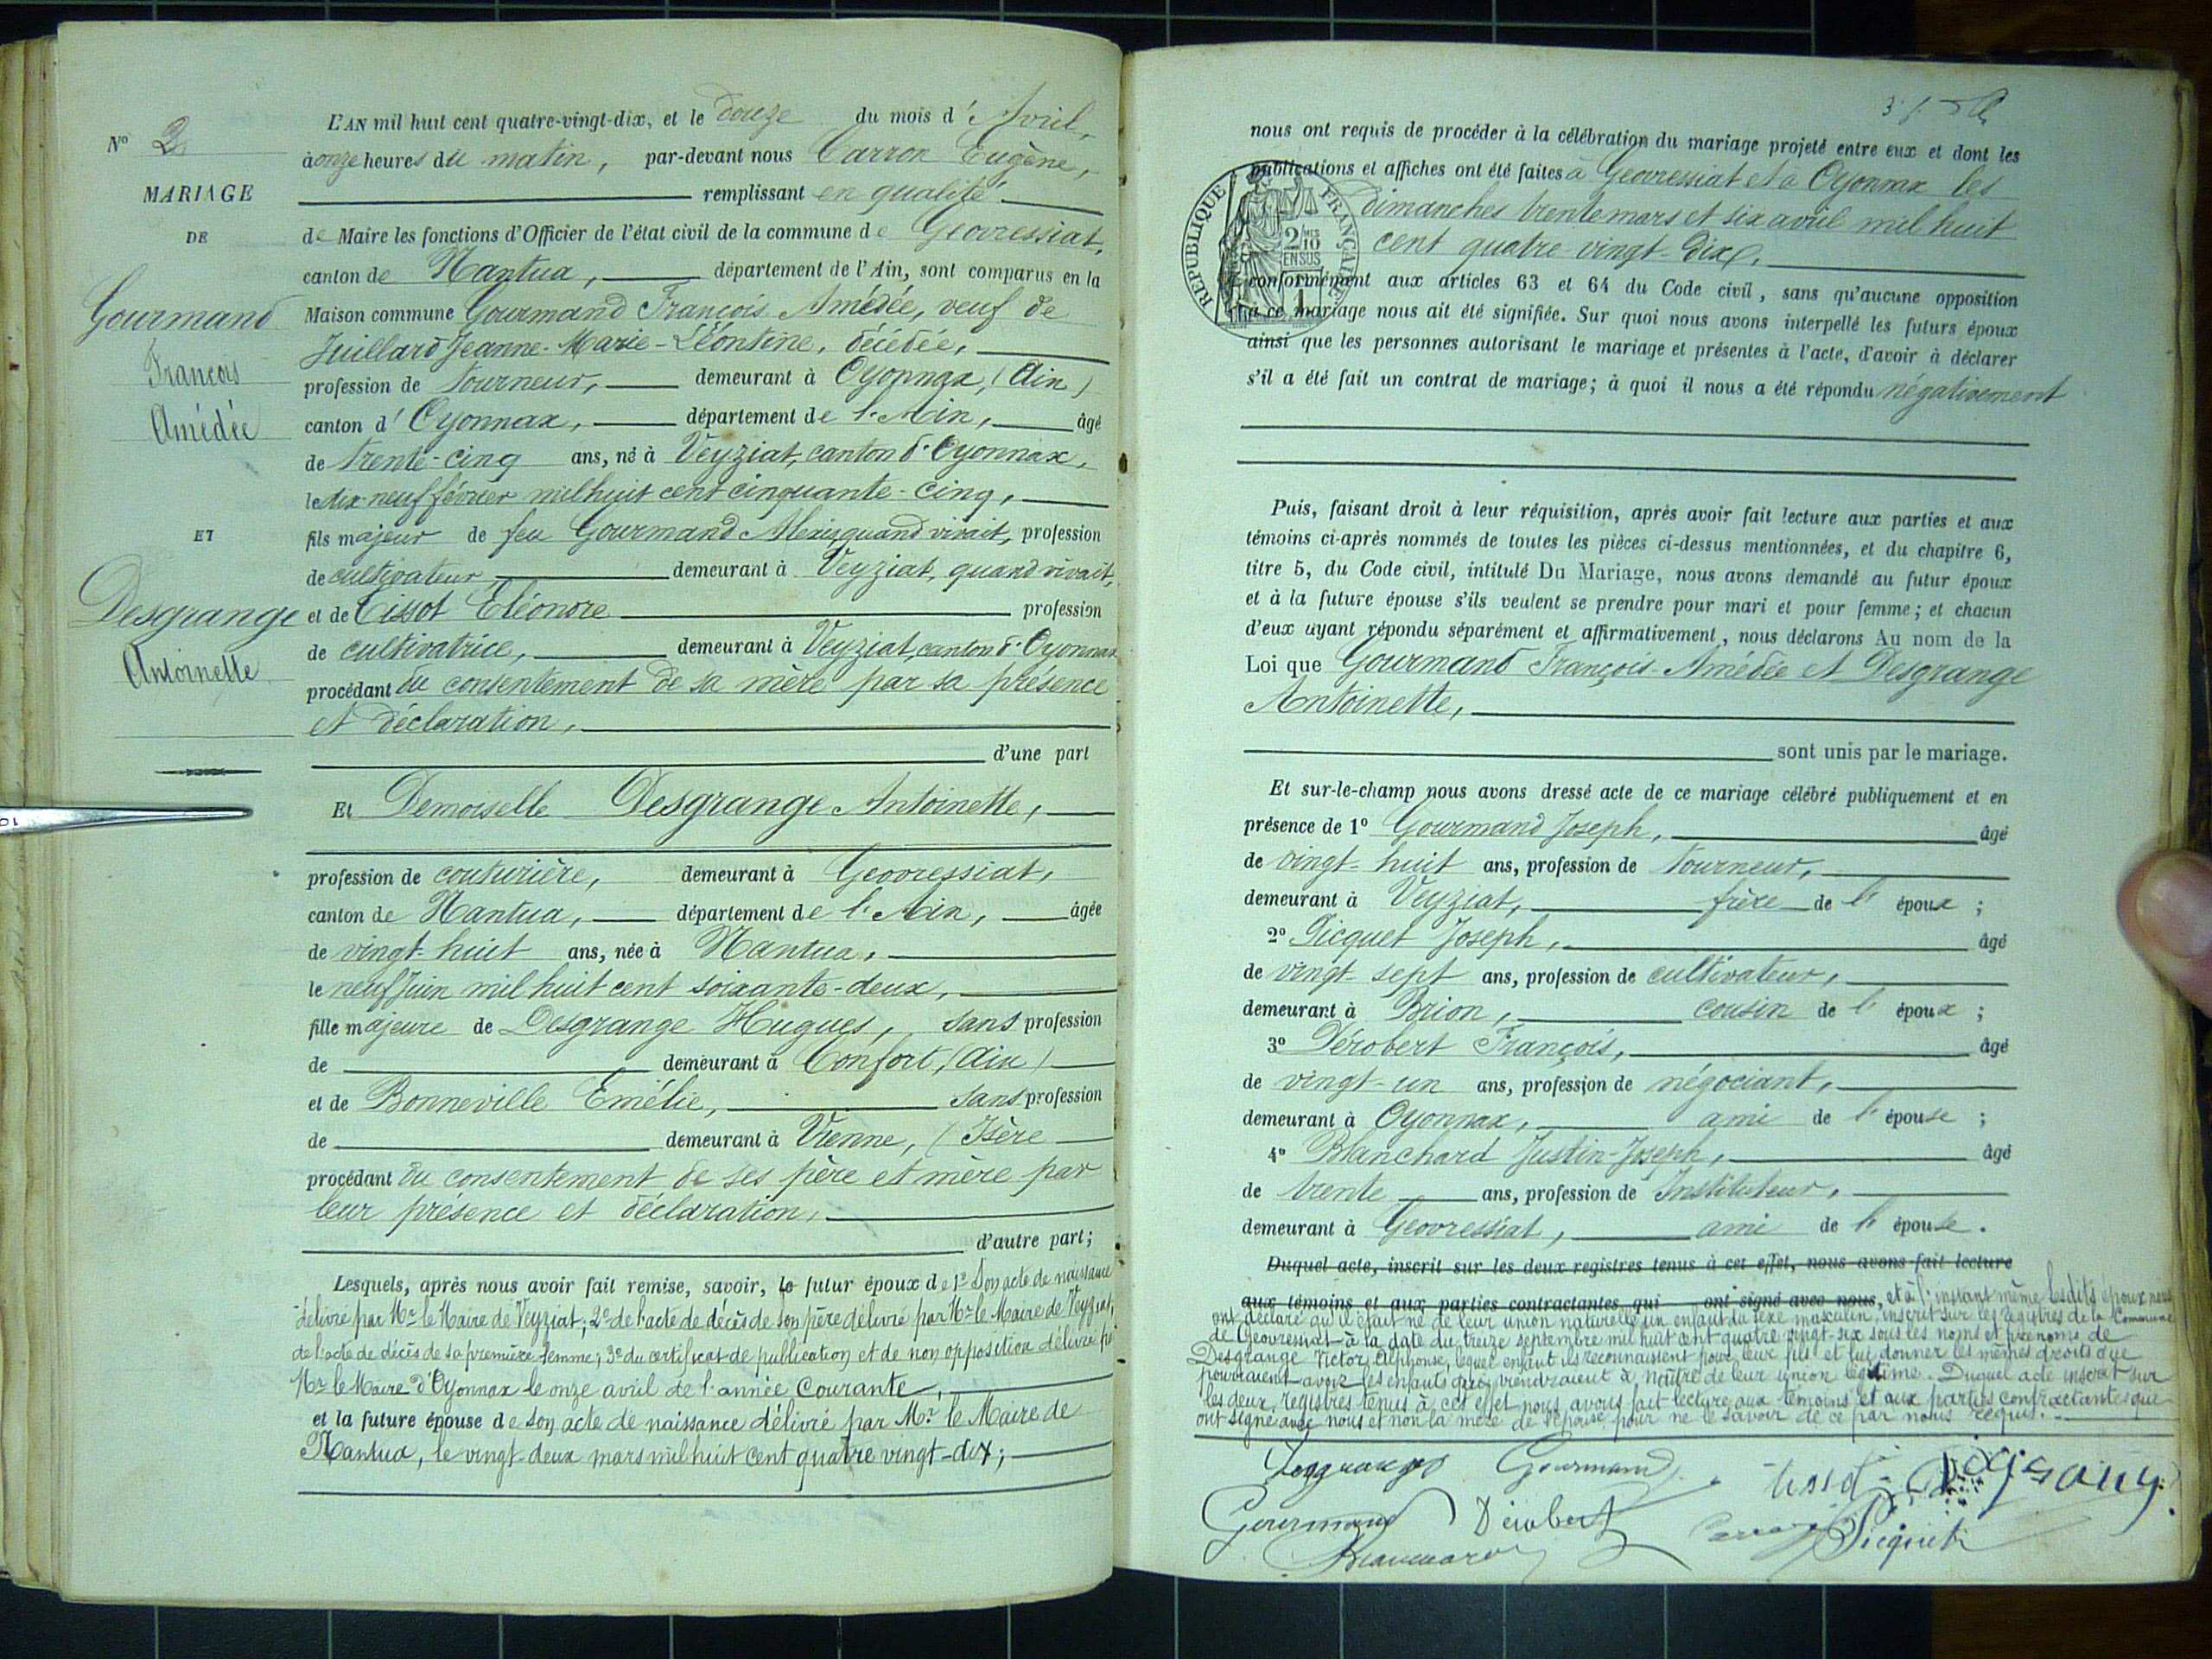 L'AN mil huit cent quatre-vingt-dix, et le douze du mois d'Avril,
à onze heures du matin, par-devant nous Carron Eugène,
remplissant en qualité
de Maire les fonctions d'Officier de l'état civil de la commune de Geovressiat,
canton de Nantua, département de l'Ain, sont comparus en la
Maison commune Gourmand François Amédée, veuf de
Juillard Jeanne-Marie-Léontine, décédée,
profession de tourneur, demeurant à Oyonnax, (Ain)
canton d'Oyonnax, département de l'Ain, âgé
de trente-cinq ans, né à Veyziat, canton d'Oyonnax,
le dix-neuf février mil huit cent cinquante-cinq,
fils majeur de feu Gourmand Alexis quand vivait, profession
de cultivateur demeurant à Veyziat, quand vivait,
et de Tissot Eléonore profession
de cultivatrice, demeurant à Veyziat, canton d'Oyonnax
procédant du consentement de sa mère par sa présence
et déclaration,
d'une part
Et Demoiselle Desgrange Antoinette,
profession de couturière, demeurant à Geovressiat,
canton de Nantua, département de l'Ain, âgée
de vingt-huit ans, née à Nantua,
le neuf Juin mil huit cent soixante-deux,
fille majeure de Desgrange Hugues, sans profession
de demeurant à Confort, (Ain)
et de Bonneville Emélie, sans profession
de demeurant à Vienne, (Isère
procédant du consentement de ses père et mère par
leur présence et déclaration,
d'autre part;
Lesquels, après nous avoir fait remise, savoir, le futur époux de 1° Son acte de naissance
délivré par Mr le Maire de Veyziat; 2° de l'acte de décès de son père délivré par Mr le Maire de Veyziat,
de l'acte de décès de sa première femme; 3° du certificat de publication et de non opposition délivré par
Mr le Maire d'Oyonnax le onze avril de l'année Courante,
et la future épouse de son acte de naissance délivré par Mr le Maire de
Nantua, le vingt-deux mars mil huit cent quatre vingt-dix;
No 2
MARIAGE
DE
Gourmand
François
Amédée
ET
Desgrange
Antoinette
nous ont requis de procéder à la célébration du mariage projeté entre eux et dont les
publications et affiches ont été faites à Geovressiat et à Oyonnax les
dimanches trente mars et six avril mil huit
cent quatre-vingt-dix,
conformément aux articles 63 et 64 du Code civil, sans qu'aucune opposition
à ce mariage nous ait été signifiée. Sur quoi nous avons interpellé les futurs époux
ainsi que les personnes autorisant le mariage et présentes à l'acte, d'avoir à déclarer
s'il a été fait un contrat de mariage; à quoi il nous a été répondu négativement
RÉPUBLIQUE FRANÇAISE
2/10 EN SUS
Puis, faisant droit à leur réquisition, après avoir fait lecture aux parties et aux
témoins ci-après nommés de toutes les pièces ci-dessus mentionnées, et du chapitre 6,
titre 5, du Code civil, intitulé Du Mariage, nous avons demandé au futur époux
et à la future épouse s'ils veulent se prendre pour mari et pour femme; et chacun
d'eux ayant répondu séparément et affirmativement, nous déclarons Au nom de la
Loi que Gourmand François-Amédée et Desgrange
Antoinette,
sont unis par le mariage.
Et sur-le-champ nous avons dressé acte de ce mariage célébré publiquement et en
présence de 1° Gourmand Joseph, âgé
de vingt-huit ans, profession de tourneur,
demeurant à Veyziat, frère de l'époux;
2° Picquet Joseph, âgé
de vingt-sept ans, profession de cultivateur,
demeurant à Brion, cousin de l'époux;
3° Dérobert François, âgé
de vingt-un ans, profession de négociant,
demeurant à Oyonnax, ami de l'épouse;
4° Blanchard Justin-Joseph, âgé
de trente ans, profession de Instituteur,
demeurant à Geovressiat, ami de l'épouse.
Duquel acte, inscrit sur les deux registres tenus à cet effet, nous avons fait lecture
aux témoins et aux parties contractantes, qui ont signé avec nous, et à l'instant même lesdits époux nous
ont déclaré qu'il était né de leur union naturelle un enfant du sexe masculin, inscrit sur les registres de la Commune
de Geovressiat à la date du treize septembre mil huit cent quatre vingt-six sous les noms et prénoms de
Desgrange Victor Alphonse, lequel enfant ils reconnaissent pour leur fils et lui donner les mêmes droits que
pourraient avoir les enfants qui viendraient à naître de leur union légitime. Duquel acte inscrit sur
les deux registres tenus à cet effet nous avons fait lecture aux témoins et aux parties contractantes qui
ont signé avec nous et non la mère de l'épouse pour ne le savoir de ce par nous requis.
Desgranges Gourmand tissot
Gourmand Dérobert Picquet
Blanchard